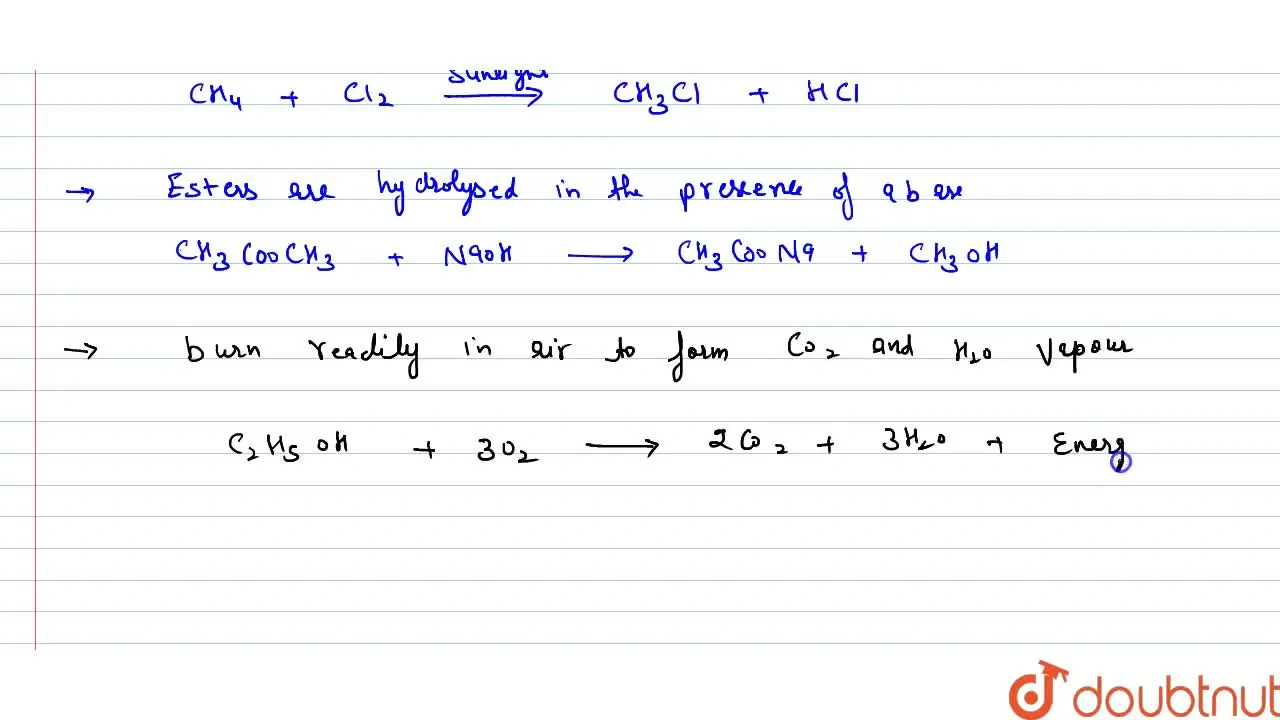 CH4 + Cl2 → CH3Cl + HCl
→ Esters are hydrolysed in the presence of a base
CH3COOCH3 + NaOH → CH3COONa + CH3OH
→ burn readily in air to form CO2 and H2O vapour
C2H5OH + 3O2 → 2CO2 + 3H2O + Energ
doubtnut